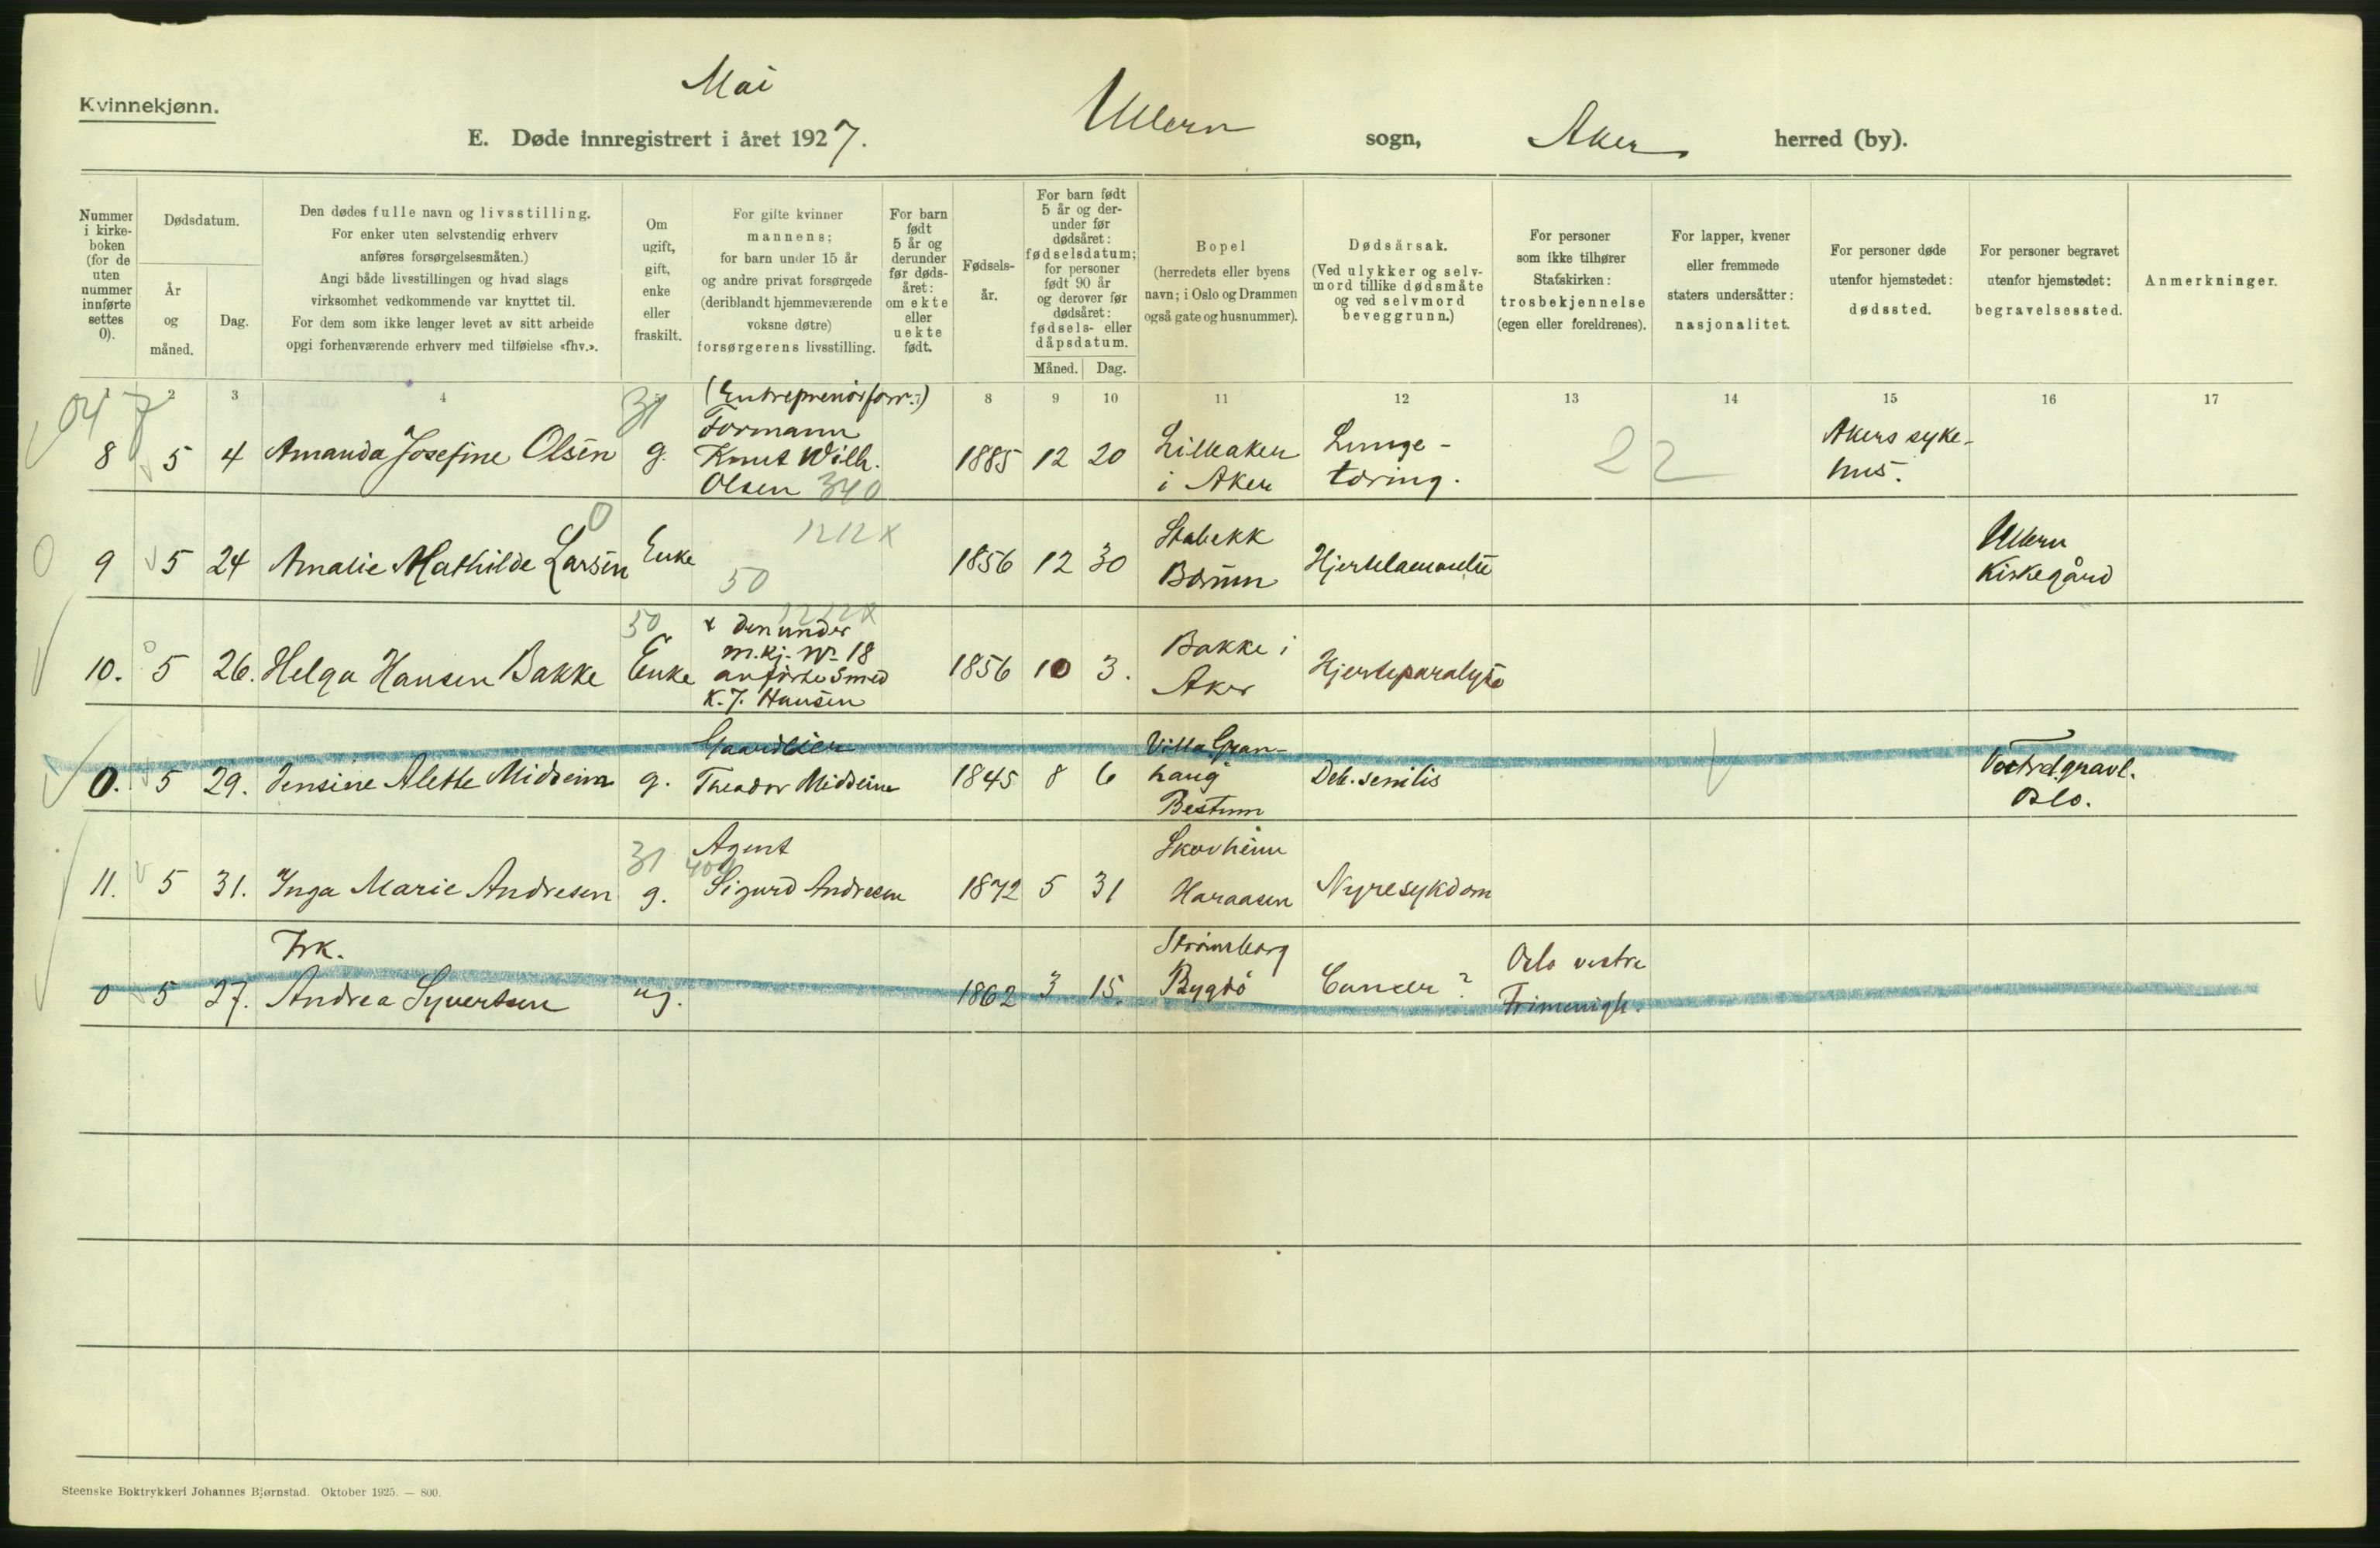 Mai
Kvinnekjønn.
E. Døde innregistrert i året 1927. Ullern sogn, Aker herred (by).
Nummer
i kirke-
boken
(for de
uten
nummer
innførte
settes
0).
Dødsdatum.
År
og
måned.
Dag.
Den dødes fulle navn og livsstilling.
For enker uten selvstendig erhverv
anføres forsørgelsesmåten.)
Angi både livsstillingen og hvad slags
virksomhet vedkommende var knyttet til.
For dem som ikke lenger levet av sitt arbeide
opgi forhenværende erhverv med tilføielse «fhv.».
Om
ugift,
gift,
enke
eller
fraskilt.
For gifte kvinner
mannens;
for barn under 15 år
og andre privat forsørgede
(deriblandt hjemmeværende
voksne døtre)
forsørgerens livsstilling.
For barn
født
5 år og
derunder
før døds-
året:
om ekte
eller
uekte
født.
Fødsels-
år.
For barn født
5 år og der-
under før
dødsåret:
fødselsdatum;
for personer
født 90 år
og derover før
dødsåret:
fødsels- eller
dåpsdatum.
Måned. Dag.
Bopel
(herredets eller byens
navn; i Oslo og Drammen
også gate og husnummer).
Dødsårsak.
(Ved ulykker og selv-
mord tillike dødsmåte
og ved selvmord
beveggrunn.)
For personer
som ikke tilhører
Statskirken:
trosbekjennelse
(egen eller foreldrenes).
For lapper, kvener
eller fremmede
staters undersåtter:
nasjonalitet.
For personer døde
utenfor hjemstedet:
dødssted.
For personer begravet
utenfor hjemstedet:
begravelsessted.
Anmerkninger.
2 3 4 8 9 10 11 12 13 14 15 16 17
04 7
31
(Entreprenörforr.)
Formann
8 5 4 Amanda Josefine Olsen g. Knut Wilh. 1885 12 20 Lilleaker Lunge- 22 Akers syke-
Olsen 340 i Aker tæring. hus.
0
1212X
0 9 5 24 Amalie Mathilde Larsen Enke 1856 12 30 Stabekk
50 Bærum Ullern
Kirkegård
50 1212X
+ den under
m.kj. No 18
10. 5 26. Helga Hansen Bakke Enke anførte Smed 1856 10 3. Bakke i
K. J. Hansen Aker Hjerteparalyse
Villa Gran-
0. 5 29. Jensine Alette Midseim g. Theodor Midseim 1845 8 6 haug Deb. senilis Vestre gravl.
Bestum Oslo.
31 Agent
Skovheim
11. 5 31. Inga Marie Andresen g. Sigurd Andresen 1872 5 31 Haraasen Nyresykdom
Frk.
Strömsborg Oslo vestre
0 5 27. Andrea Syvertsen ug. 1862 3 15. Bygdö Cancer? Frimenigh.
Steenske Boktrykkeri Johannes Bjørnstad. Oktober 1925. — 800.